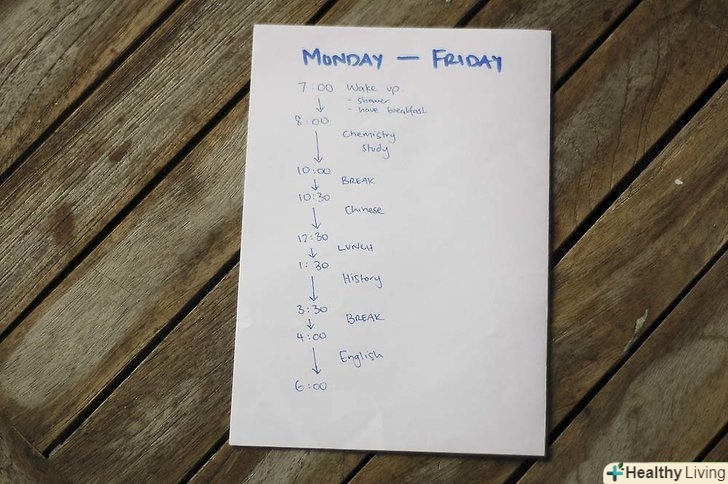 MONDAY — FRIDAY
7:00 Wake up.
- shower
- have breakfast
8:00
Chemistry
study
10:00
BREAK
10:30
Chinese
12:30
LUNCH
1:30
History
3:30
BREAK
4:00
English
6:00
Healthy Living